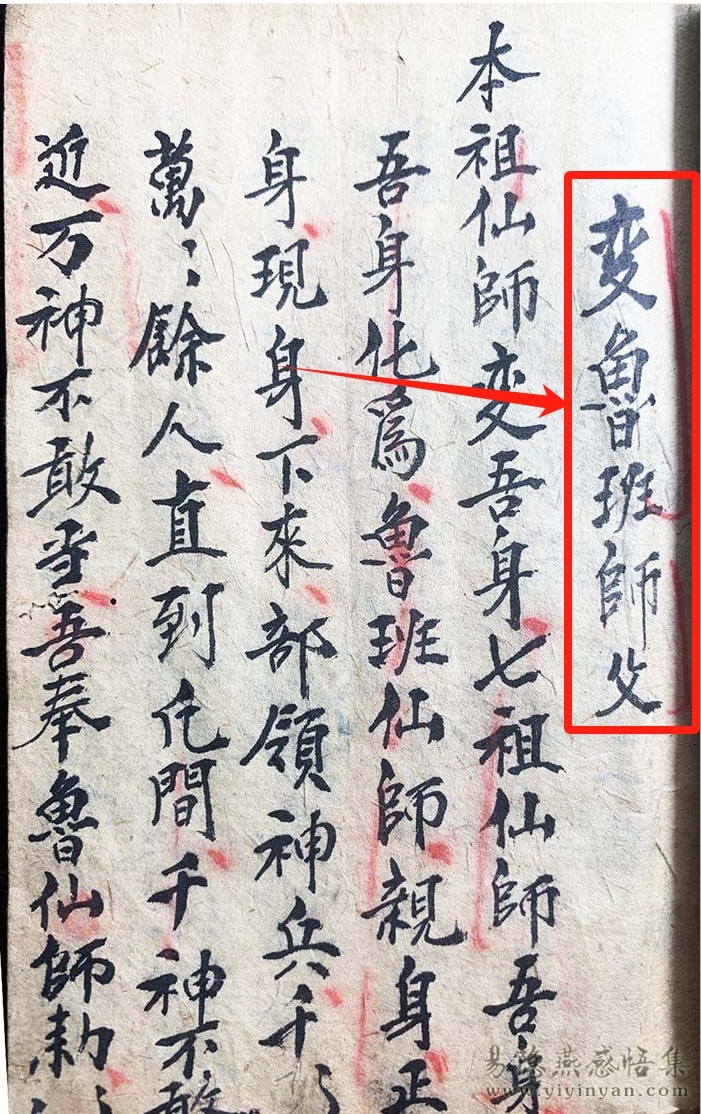 变魯班師父
本祖仙師变吾身七祖仙師吾身
吾身化爲魯班仙師親身正
身現身下來部領神兵千〻
萬〻餘人直到間千神不敢
近万神不敢当吾奉魯仙師勅〻
易隐燕感悟集
www.yiyinyan.com